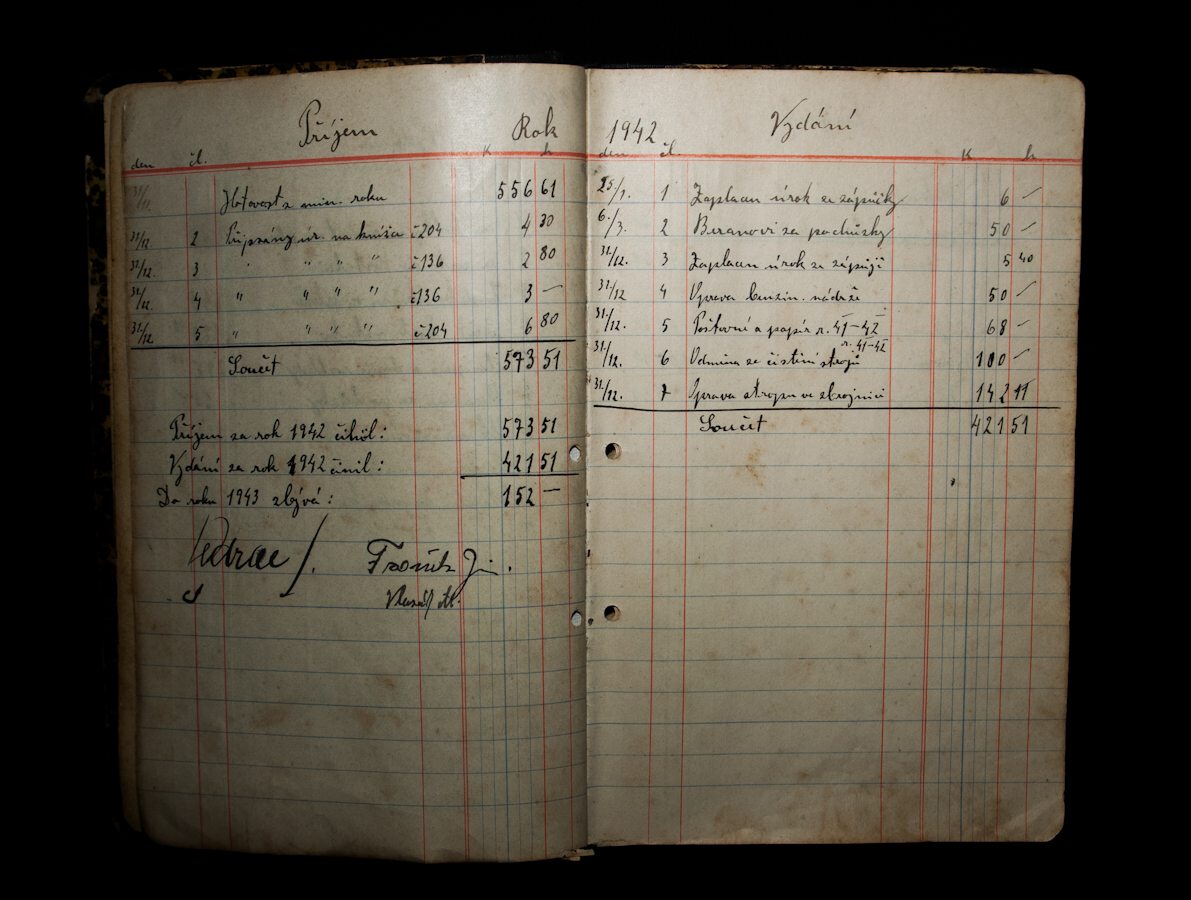 Příjem Rok
den čl. K h
31/12. Hotovost z min. roku 556 61
31/12. 2 Připsaný úr. na knížce č 204 4 30
31/12. 3 " " " " č 136 2 80
31/12. 4 " " " " č 136 3 —
31/12. 5 " " " " č 204 6 80
Součet 573 51
Příjem za rok 1942 činil: 573 51
Vydání za rok 1942 činil: 421 51
Do roku 1943 zbývá: 152 —
1942 Vydání
den čl. K h
25/1. 1 Zaplacen úrok ze zápůjčky 6 —
6./3. 2 Beranovi za pochůzky 50 —
31/12. 3 Zaplacen úrok ze zápůjč 5 40
31/12 4 Oprava benzin. nádrže 50 —
31./12. 5 Poštovní a papír r. 41–42 68 —
31./12. 6 Odměna za čistění strojů r. 41–42 100 —
31./12. 7 Oprava stropu ve zbrojnici 142 11
Součet 421 51